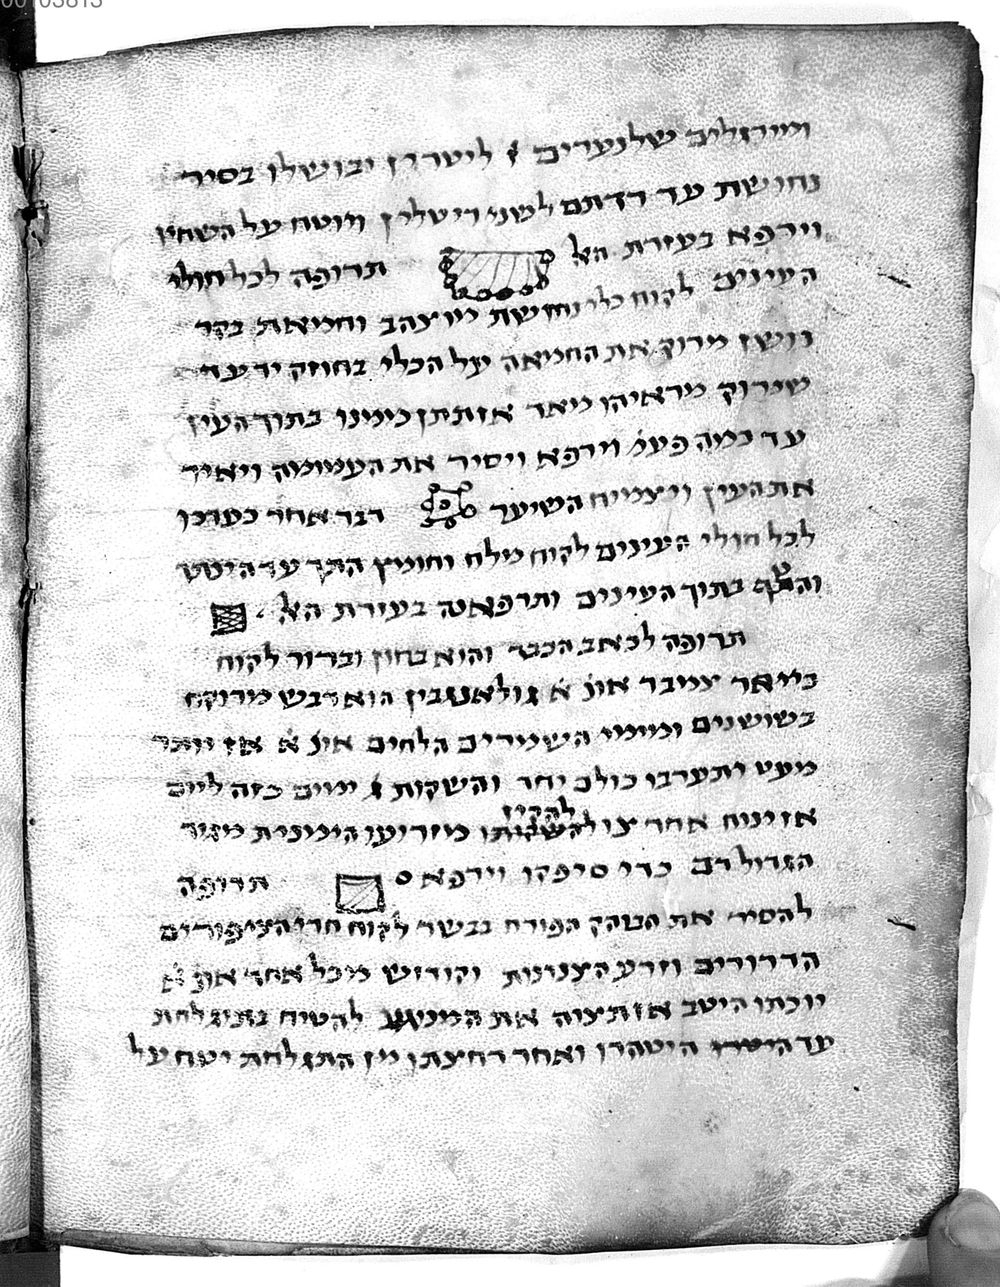 00103813
ומירגלים שלנערים ליטרין ובושלו בסיר
נחושת עד רדתם לשני ריטלין ויוטח על השחין
וירפא בעזרת האל תרופה לכל חולי
העינים לקוח כלי נחושת מוצהב וחמאת בקר
וישן מרוק את החמאה על הכלי בחוזק יד עד
שנרוק מראיהו מאד אז תתן ממנו בתוך העין
עד כמה פעמ וירפא ויסיר את העמומה ויאיר
את העין ויצמיח השיער דבר אחר כערכו
לכל חולי העינים לקוח מלח וחומץ התך עד היטב
בתוך העינים ותרפאנה בעזרת האל
תרופה לכאב הכבד והוא בחון וברור לקוח
צמיבר אונ א גולאנגבין הוא דבש מרוקח
בשושנים וממימי השמירים הלחים אונ א אז
מעט ותערבו כולם יחד והשקות ימים כזה ליום
אז ינוח אחר צו להקיז מזריעו הימנית מגיד
הגדול דם כדי סיפקו וירפא תרופה
להסיר את הבוהק הפורח בבשר לקוח חרי הציפורים
הדרורים וזרע הצנונות וקודוש מכל אחד אונ א
יוכתו היטב אז תצוה את המנוגע להטיח בתוגלחת
עד היטהרו ואחר רחצתו מן התגלחת יטח על